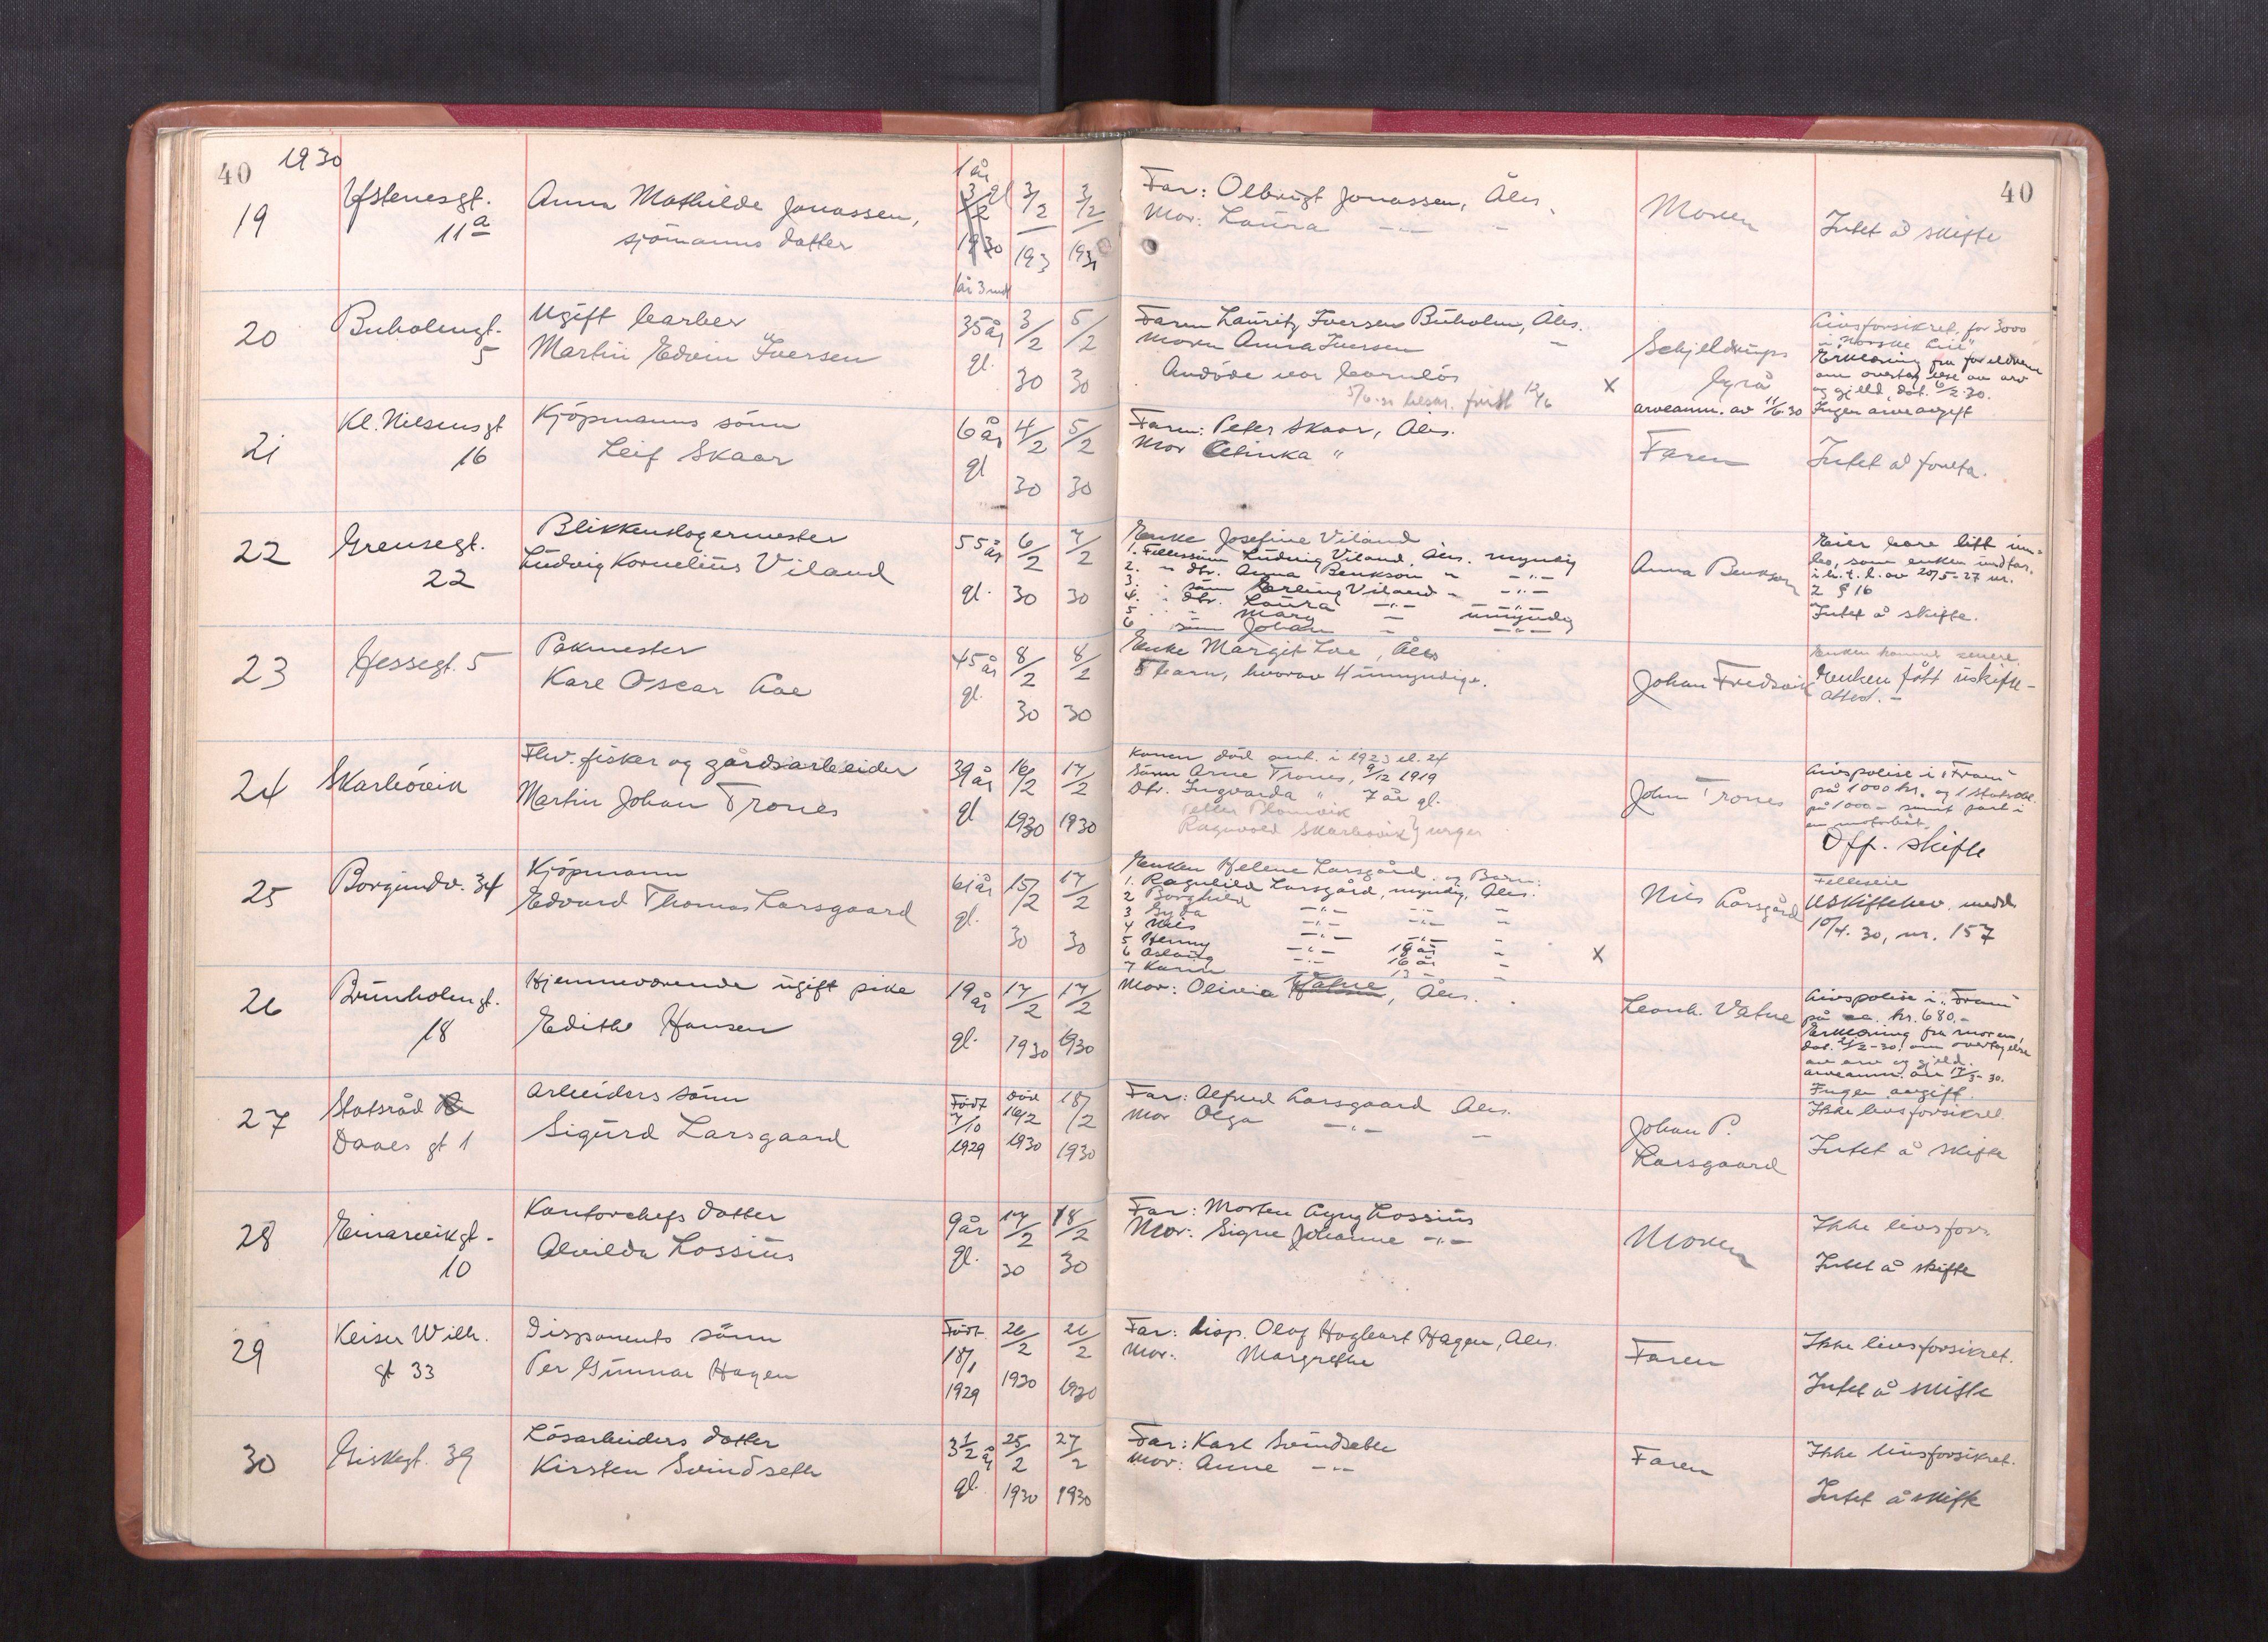 40 1930
19
Ystenesgt.
11 a
Anna Mathilde Jonassen,
sjömanns datter
1 år
3/2 gl
1930
1 år 3 md
3/2
193
3/2
1930
Far: Olbrigt Jonassen, Åles.
Mor: Laura -"- -
Moren
Intet å skifte
40
20
Buholmgt.
5
Ugift barber
Martin Edvin Iversen
35 år
gl.
3/2
30
5/2
30
Faren Lauritz Iversen Buholm, Åles.
Moren Anna Iversen -
Avdöde var barnlös
Schjeldrups
byrå
x
arveanm. av 11/6-30
Livsforsikret for 3000
i "Norske Liv"
Erklæring fra foreldrene
om overtagelse av arv
og gjeld, dat. 6/2-30.
Ingen arveavgift
21
Kl. Nilsensgt
16
Kjöpmanns sönn
Leif Skaar
6 år
gl
4/2
30
5/2
30
Faren: Peter Skaar, Åles.
Mor Elinka "
Faren
Intet å foreta.
22
Grensegt.
22
Blikkenslagermester
Ludvig Kornelius Viland
55 år
gl.
6/2
30
7/2
30
Enke Josefine Viland
1. Fellessönn Ludvig Viland, Åles. myndig
2. " dtr. Anna Benkson " -"-
3. " sönn Erling Viland " -"-
4. " dtr. Laura -"- -"-
5 " " Mary - umyndig
6 sönn Johan - -"-
Anna Benkson
Eier bare litt inn-
bo, som enken undtar
i h. t. l. av 20/5-27 nr.
2 § 16
Intet å skifte.
23
Hessegt. 5
Pakmester
Karl Oscar Loe
45 år
gl.
8/2
30
8/2
30
Enke Margit Loe, Åles
5 barn, hvorav 4 umyndige.
Johan Fredsvik
Enken kommer senere
Enken fått uskifte-
attest. -
24
Skarbövik
Fhv. fisker og gårdsarbeider
Martin Johan Trones
39 år
gl
16/2
1930
17/2
1930
Konen död omt. i 1923 el. 24
Sönn Arne Trones, 9/12 1919
Dtr. Ingvarda " 7 år gl.
Ragnvald Skarbövik
John Trones
Livspolise i "Fram"
på 1000 kr. og 1 Statsobl.
på 1000 - samt part i
en motorbåt.
Off. skifte
25
Borgundv. 34
Kjöpmann
Edvard Thomas Larsgaard
61 år
gl.
15/2
30
17/2
30
Enken Helene Larsgård og Barn:
1. Ragnhild Larsgård, myndig, Åles.
2 Borghild -"- -"- -
3 Gyda -"- -"- -
4 Nils -"- -"- -
5 Henny -"- 18 år -
6 Aslaug -"- 16 år -
7 Karin -"- 13 - -
x
Nils Larsgård
Felleseie
Uskiftebev. medd.
10/4. 30, nr. 157
26
Brunholmgt.
18
Hjemmeværende ugift pike
Edithe Hansen
19 år
gl.
17/2
1930
17/2
1930
Mor: Olivia Vatne, Åles.
Leonh. Vatne
Livspolise i "Fram"
på ca. kr. 680,-
Erklæring fra moren,
om overtagelse
av arv og gjeld.
arveanm. av 17/3-30.
Ingen avgift.
27
Statsråd
Daaes gt 1
Arbeiders sönn
Sigurd Larsgaard
Födt
7/10
1929
Död
16/2
1930
18/2
1930
Far: Alfred Larsgaard Åles.
Mor Olga -"- -
Johan P.
Larsgaard
Ikke livsforsikret
Intet å skifte
28
Einarvikgt.
10
Kontorchefs datter
Alvilda Lossius
9 år
gl.
17/2
30
18/2
30
Far: Morten Lossius
Mor: Signe Johanne -"-
Moren
Ikke livsfors.
Intet å skifte
29
Keiser Wilh.
gt 33
Disponents sönn
Per Gunnar Hagen
Födt
18/1
1929
26/2
1930
26/2
1930
Far: disp. Olaf Hagbart Hagen, Åles.
Mor: Margrethe
Faren
Ikke livsforsikret.
Intet å skifte
30
Giskegt. 39
Lösarbeiders datter
Kirsten Svindseth
3 1/2 år
gl.
25/2
1930
27/2
1930
Far: Karl Svindseth
Mor: Anne -"-
Faren
Ikke livsforsikret.
Intet å skifte